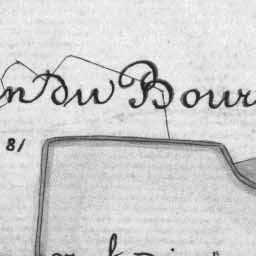 n du Bour
81